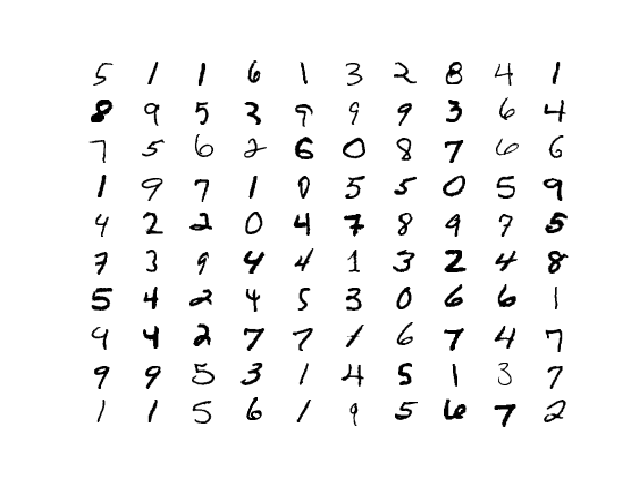 5 1 1 6 1 3 2 8 4 1
8 9 5 3 9 9 9 3 6 4
7 5 6 2 6 0 8 7 6 6
1 9 7 1 0 5 5 0 5 9
4 2 2 0 4 7 8 9 9 5
7 3 9 4 4 1 3 2 4 8
5 4 2 4 5 3 0 6 6 1
9 4 2 7 7 1 6 7 4 7
9 9 5 3 1 4 5 1 3 7
1 1 5 6 1 9 5 6 7 2